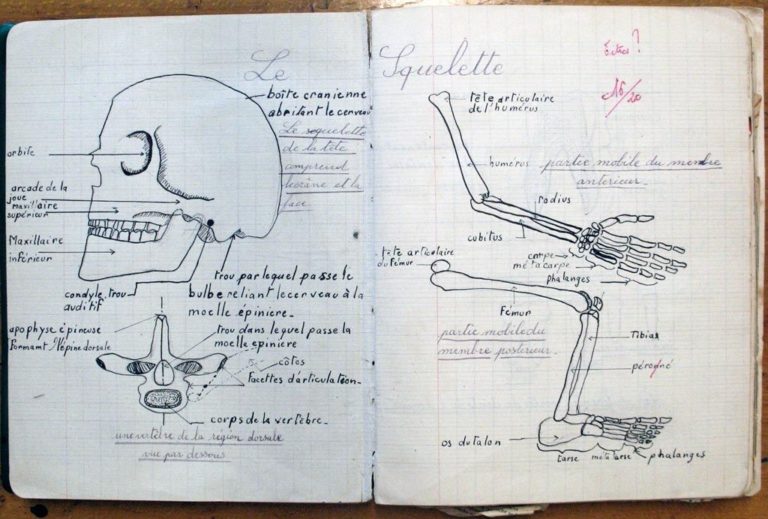 Le Squelette
boîte cranienne
abritant le cerveau
Le squelette
de la tête
comprend
le crâne et la
face
orbite
arcade de la
joue
maxillaire
supérieur
Maxillaire
inférieur
condyle trou
auditif
trou par lequel passe le
bulbe reliant le cerveau à la
moelle épinière.
apophyse épineuse
formant l'épine dorsale
trou dans lequel passe la
moelle epinière
côtes
facettes d'articulation
corps de la vertèbre.
une vertèbre de la région dorsale
vue par dessous
?
16/20
tête articulaire
de l'humérus
humérus
partie mobile du membre
antérieur.
radius
cubitus
carpe
métacarpe
phalanges
tête articulaire
du fémur
Fémur
partie mobile du
membre postérieur.
Tibia
péroné
os du talon
tarse
métatarse
phalanges